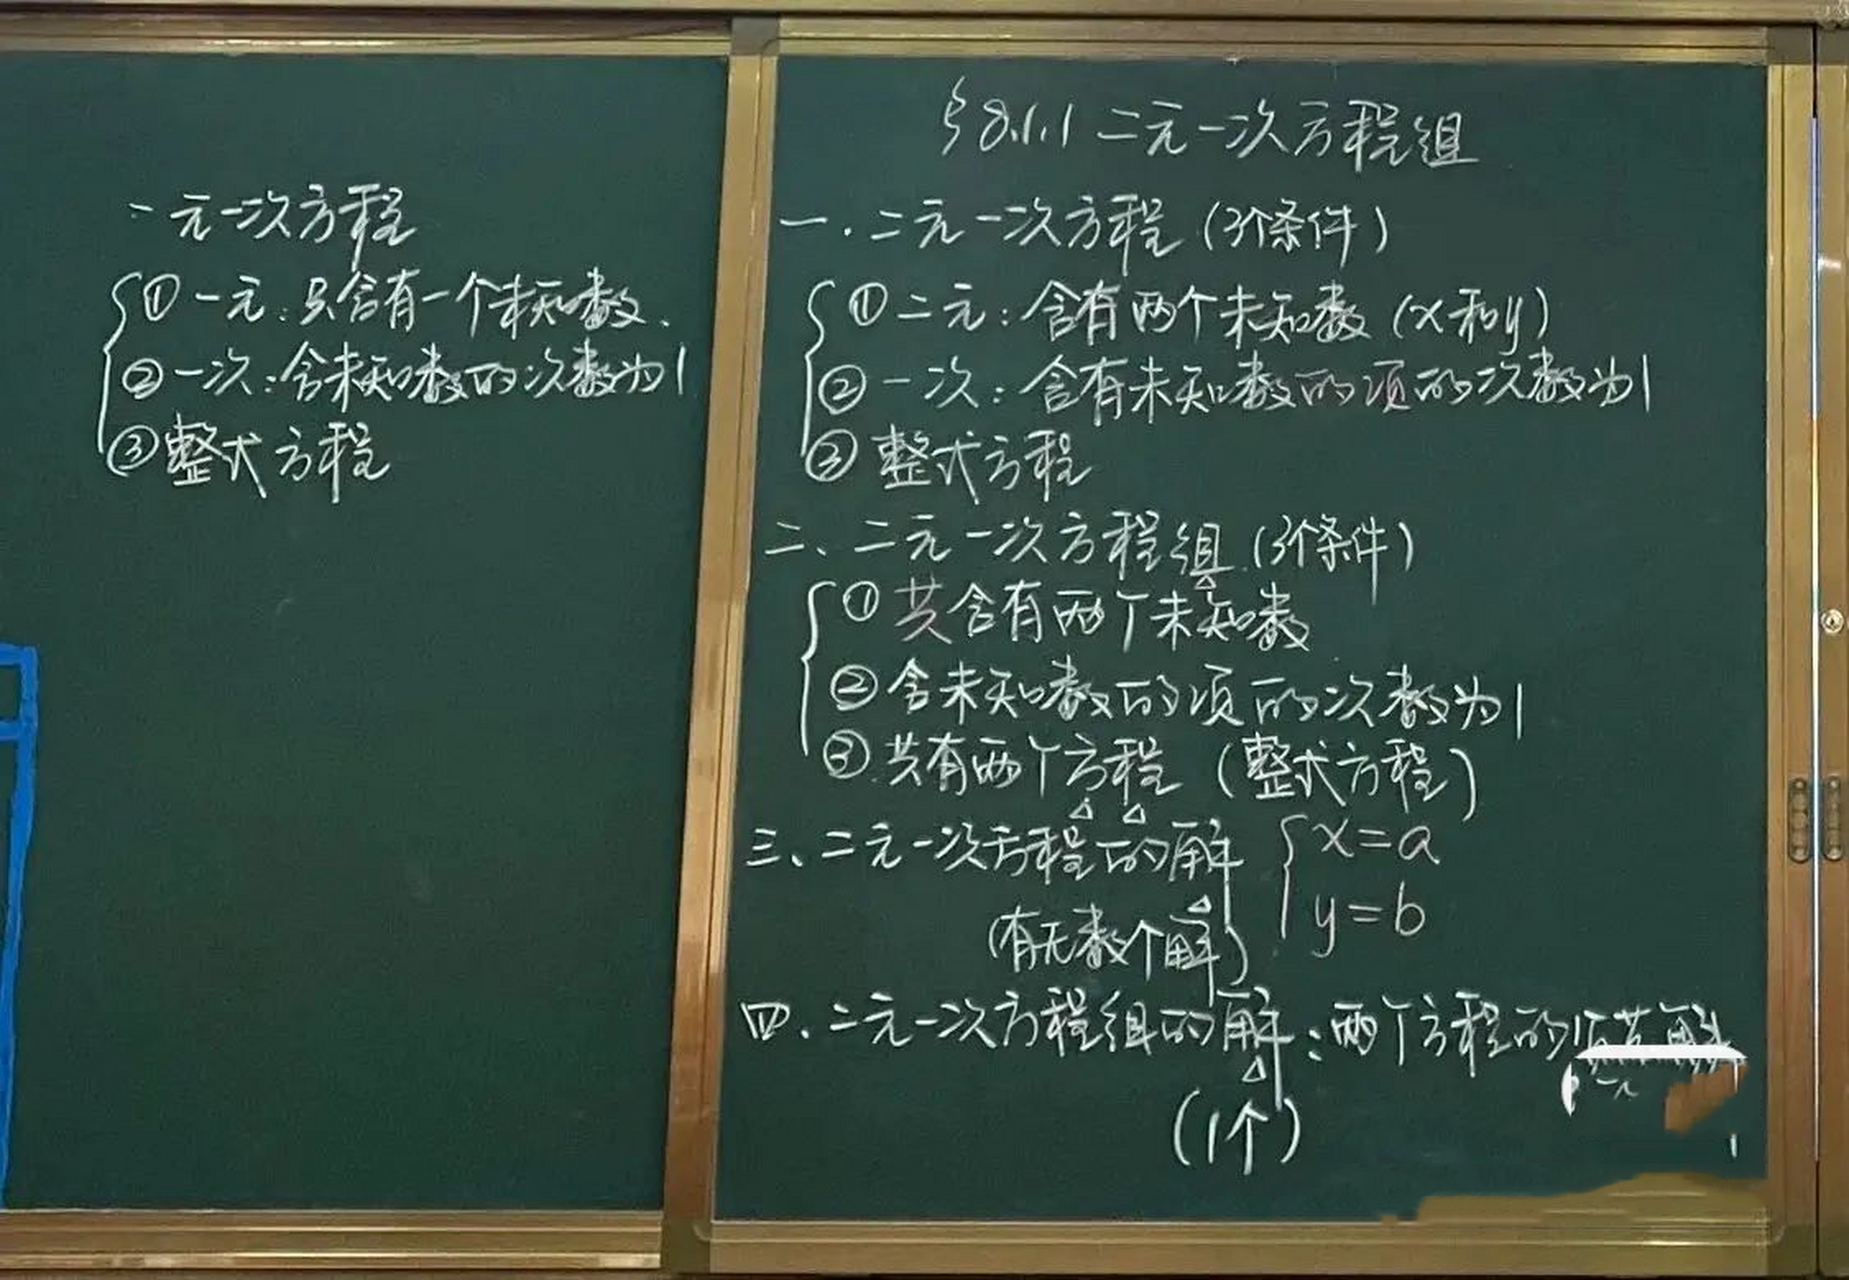 一元一次方程
①一元:只含有一个未知数、
②一次:含未知数的次数为1
③整式方程
§8.1.1 二元一次方程组
一.二元一次方程(3个条件)
①二元:含有两个未知数(x和y)
②一次:含有未知数的项的次数为1
③整式方程
二、二元一次方程组(3个条件)
①共含有两个未知数
②含未知数的项的次数为1
③共有两个方程(整式方程)
三、二元一次方程的解 { x=a
y=b
(有无数个解)
四.二元一次方程组的解:两个方程的公共解
(1个)